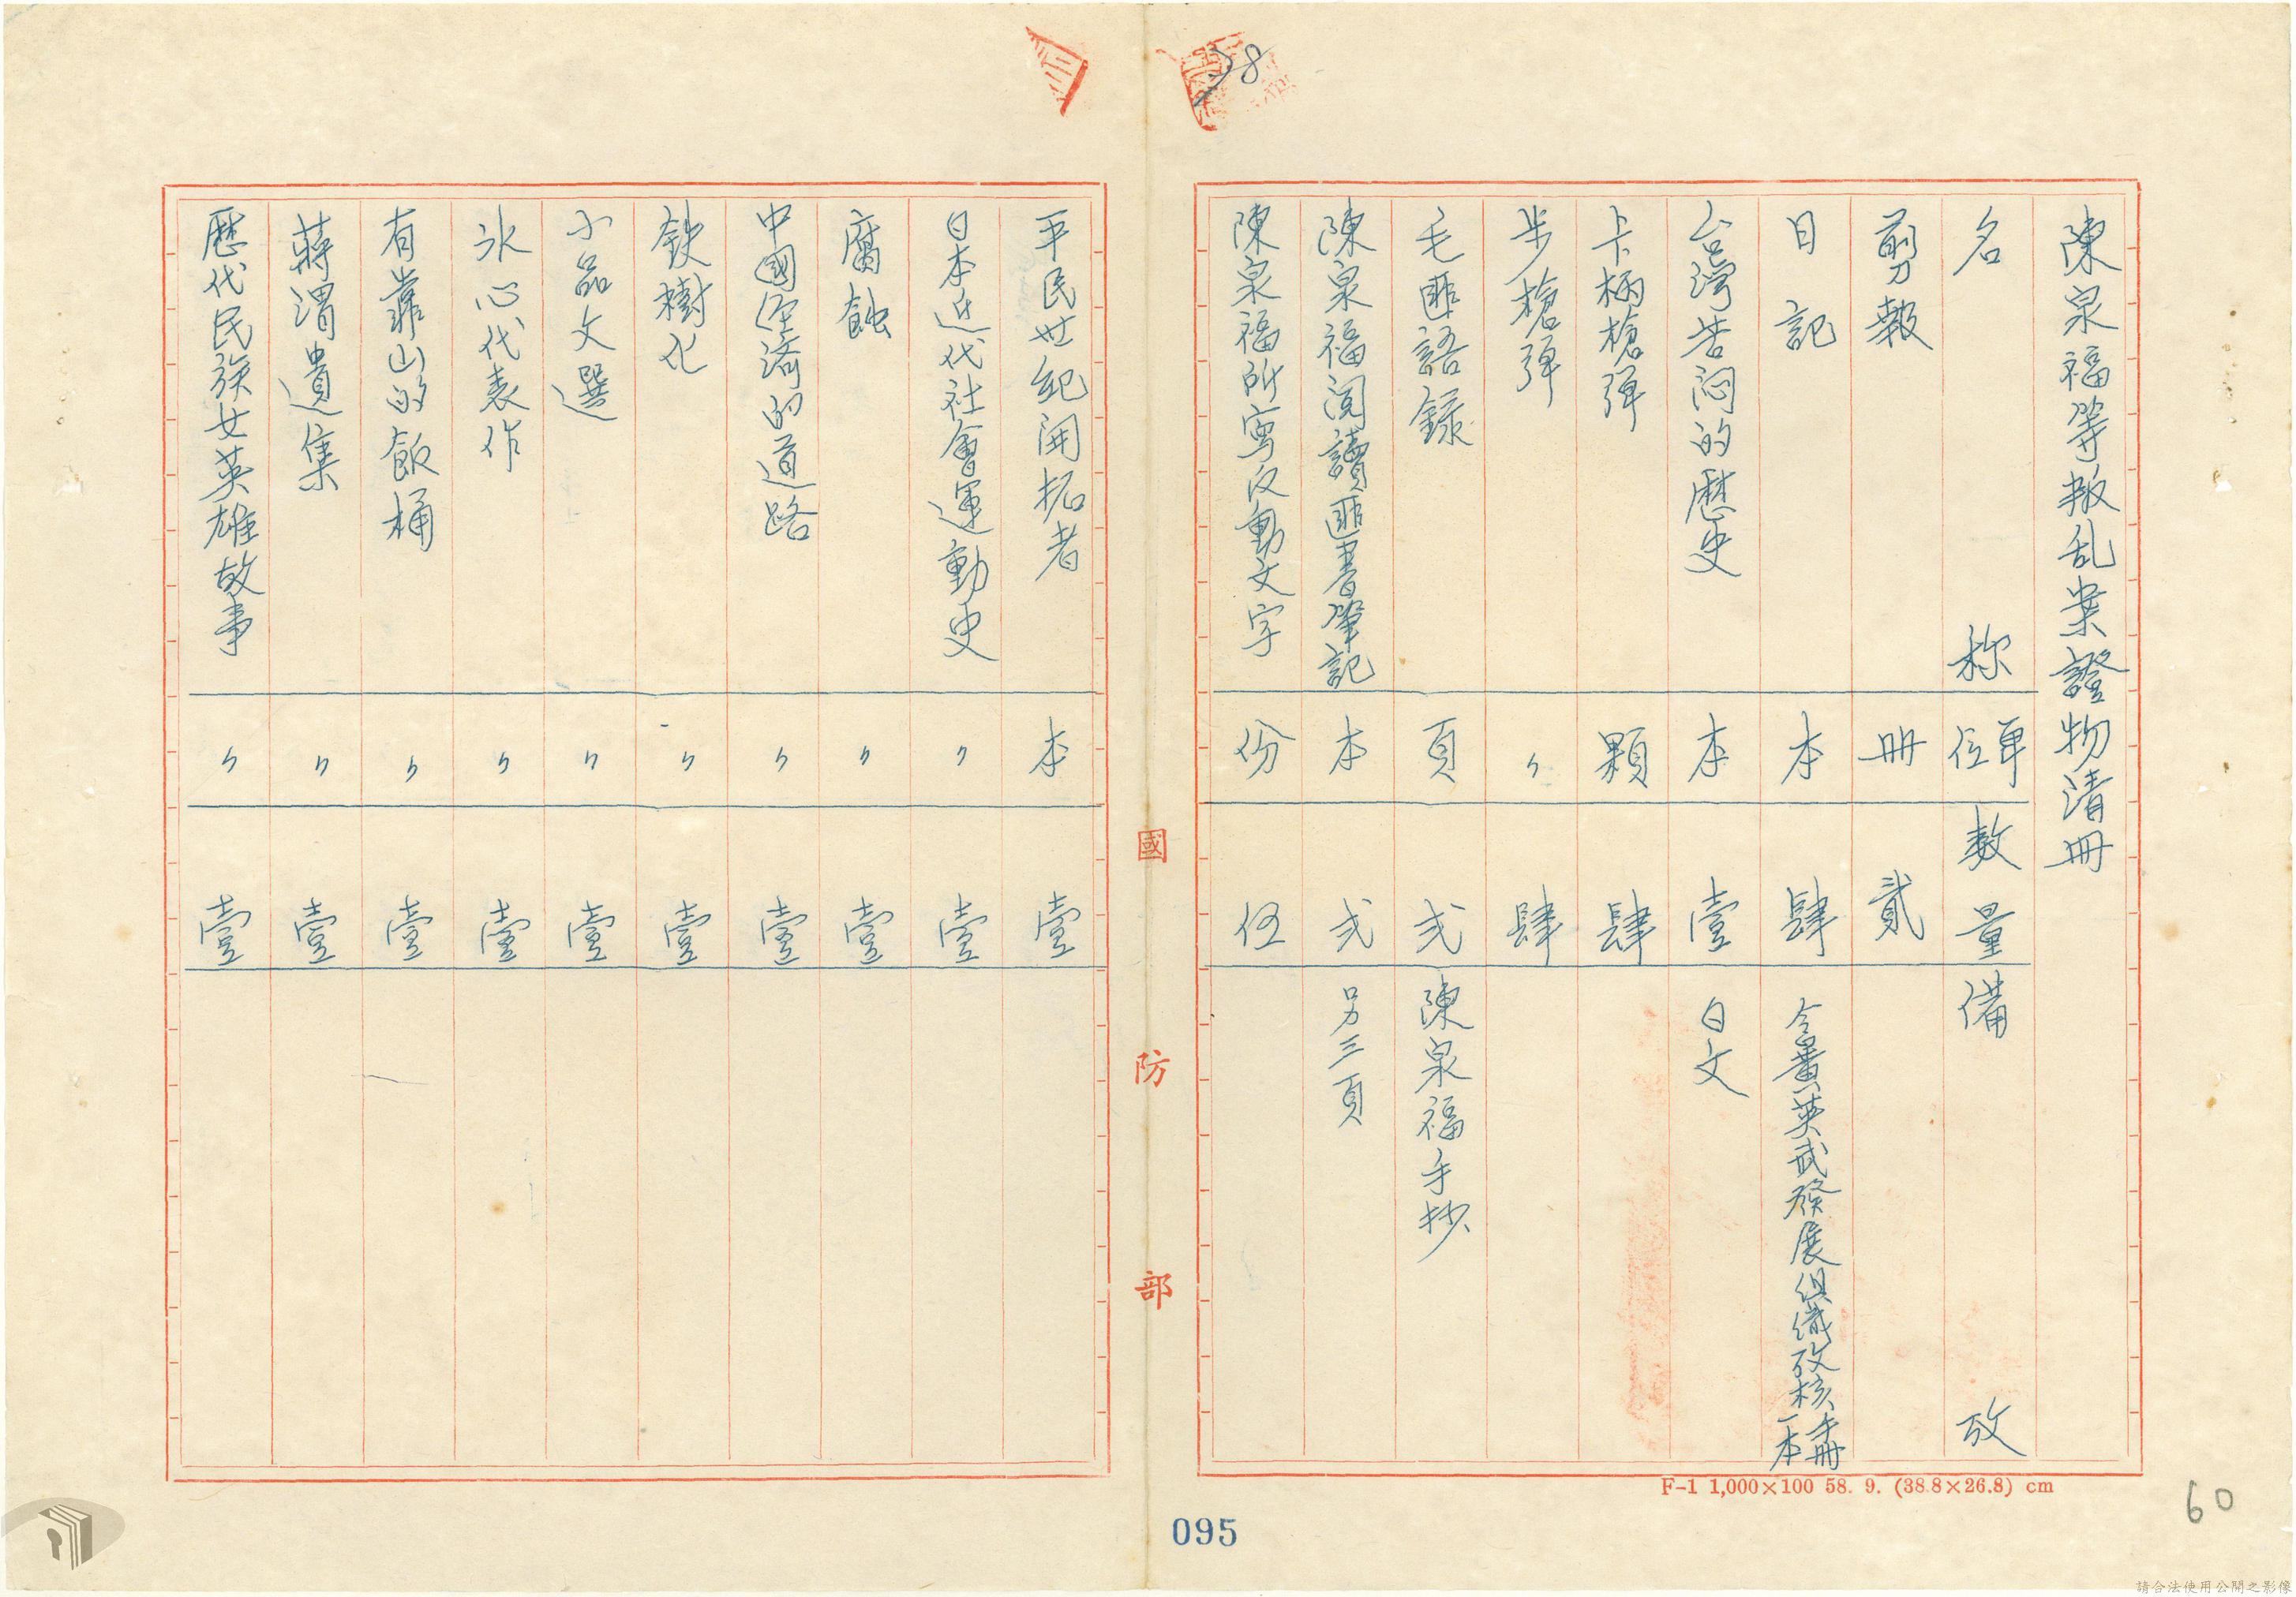 38
陳泉福等叛乱案證物清冊
名 称 單位 数量 備 攷
剪報 冊 貳
日記 本 肆 令番英武發展組織攷核手冊一本
台湾苦悶的歷史 本 壹 日文
卡柄槍彈 顆 肆
步槍彈 〃 肆
毛匪語錄 頁 弍 陳泉福手抄
陳泉福閱讀匪書筆記 本 弍 另三頁
陳泉福所寫反動文字 份 伍
國防部
平民世紀開拓者 本 壹
日本近代社會運動史 〃 壹
腐蝕 〃 壹
中國経済的道路 〃 壹
鉄樹化 〃 壹
小品文選 〃 壹
氷心代表作 〃 壹
有靠山的飯桶 〃 壹
蔣渭遺集 〃 壹
歷代民族女英雄故事 〃 壹
F-1 1,000×100 58. 9. (38.8×26.8) cm
095
60
請合法使用公開之影像